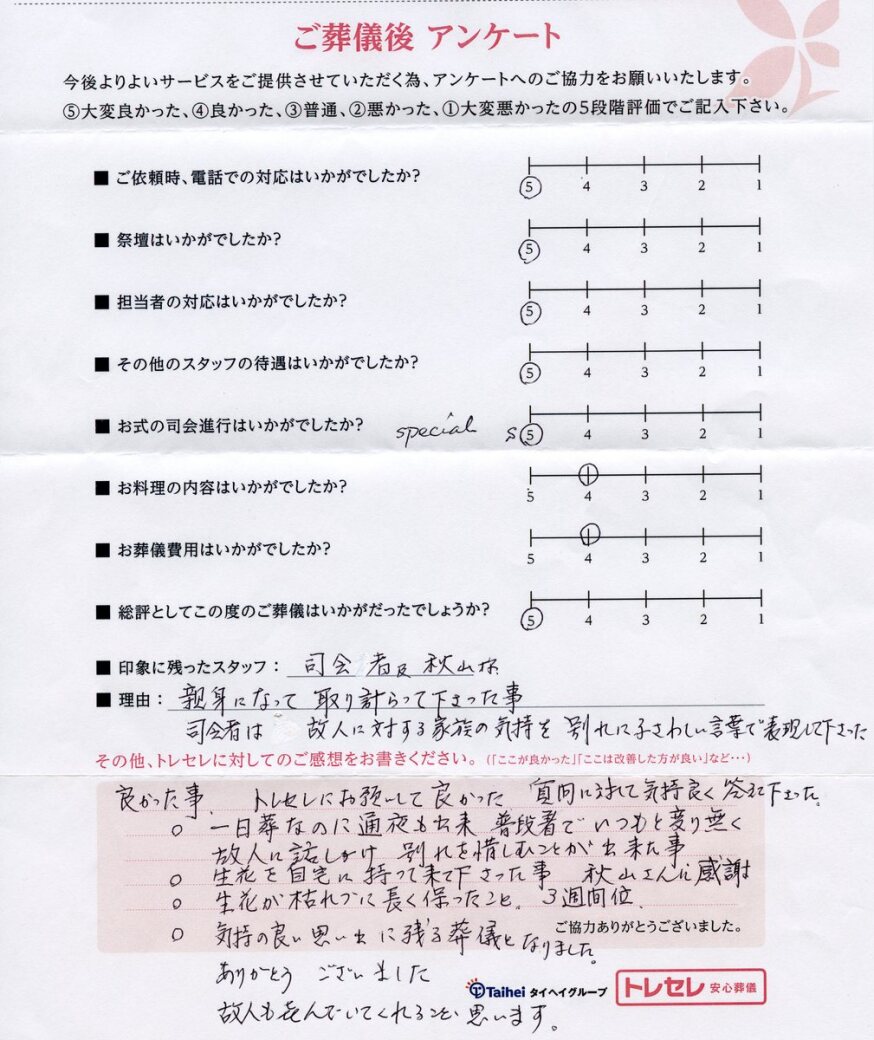 ご葬儀後 アンケート
今後よりよいサービスをご提供させていただく為、アンケートへのご協力をお願いいたします。
⑤大変良かった、④良かった、③普通、②悪かった、①大変悪かったの5段階評価でご記入下さい。
■ ご依頼時、電話での対応はいかがでしたか?
5 4 3 2 1
■ 祭壇はいかがでしたか?
5 4 3 2 1
■ 担当者の対応はいかがでしたか?
5 4 3 2 1
■ その他のスタッフの待遇はいかがでしたか?
5 4 3 2 1
■ お式の司会進行はいかがでしたか? special s
5 4 3 2 1
■ お料理の内容はいかがでしたか?
5 4 3 2 1
■ お葬儀費用はいかがでしたか?
5 4 3 2 1
■ 総評としてこの度のご葬儀はいかがだったでしょうか?
5 4 3 2 1
■ 印象に残ったスタッフ： 司会者及 秋山様
■ 理由： 親身になって 取り計らって下さった事
司会者は 故人に対する家族の気持を 別れにふさわしい言葉で表現して下さった
その他、トレセレに対してのご感想をお書きください。(「ここが良かった」「ここは改善した方が良い」など…)
良かった事、 トレセレにお願いして良かった 質問に対して気持良く答えて下さった。
○ 一日葬なのに通夜も出来 普段着でいつもと変り無く
故人に話しかけ 別れを惜しむことが出来た事
○ 生花を自宅に持って来て下さった事 秋山さんに感謝
○ 生花が枯れづに長く保ったこと。 3週間位
○ 気持の良い思い出に残る葬儀となりました。
ご協力ありがとうございました。
ありがとう ございました
故人も喜んでいてくれること、思います。
Taihei タイヘイグループ
トレセレ 安心葬儀